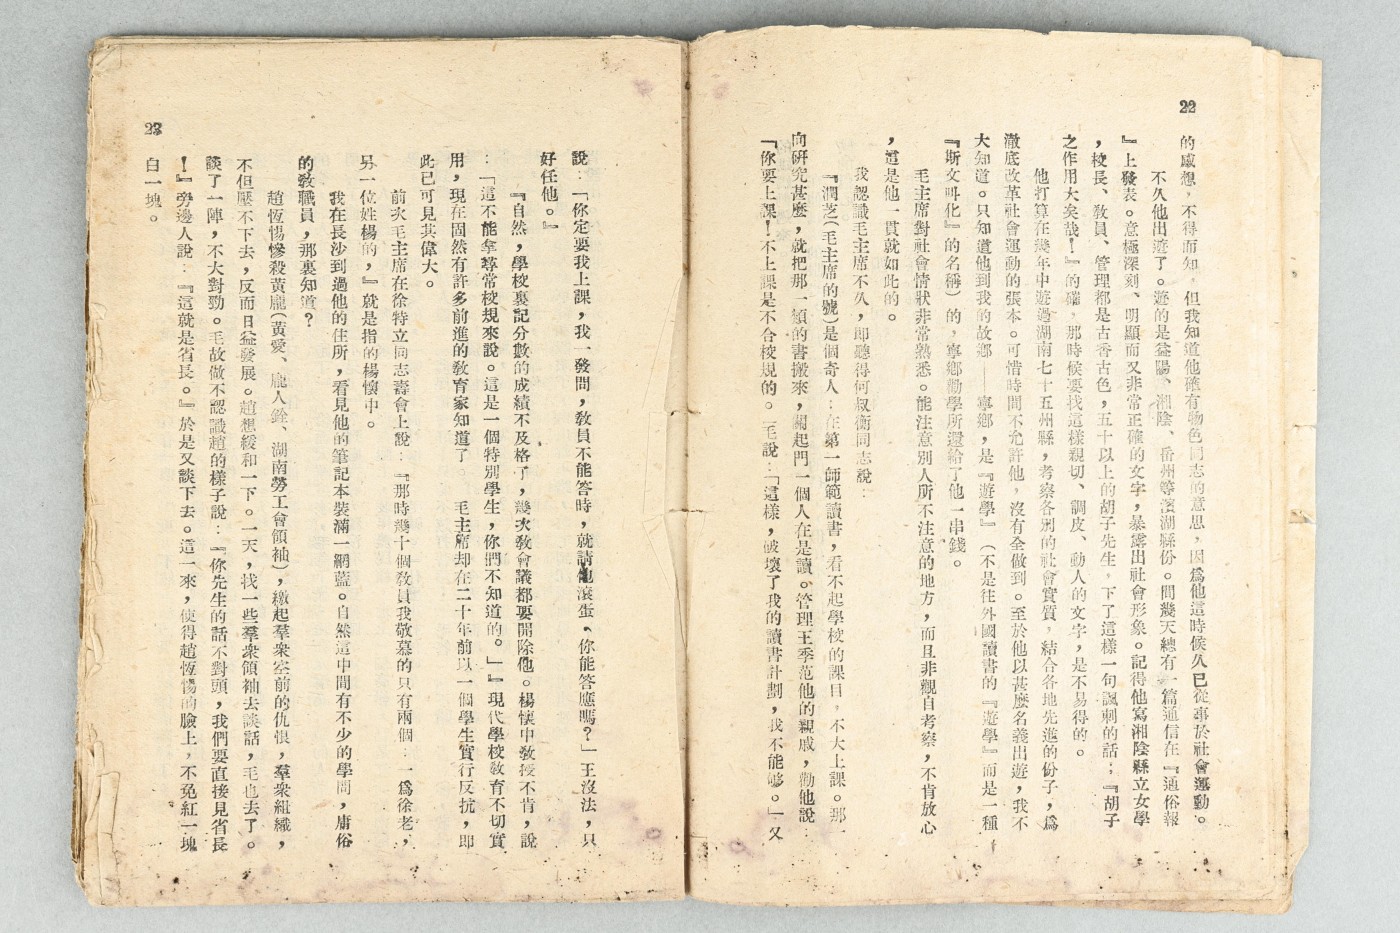 22
的感想，不得而知，但我知道他確有物色同志的意思，因爲他這時候久已從事於社會運動。
不久他出遊了。遊的是益陽、湘陰、岳州等濱湖縣份。間幾天總有一篇通信在『通俗報
』上發表。意極深刻、明顯而又非常正確的文字，暴露出社會形象。記得他寫湘陰縣立女學
，校長、敎員、管理都是古香古色，五十以上的胡子先生，下了這樣一句諷刺的話；『胡子
之作用大矣哉！』的確，那時候要找這樣親切、調皮、動人的文字，是不易得的。
他打算在幾年中遊過湖南七十五州縣，考察各別的社會實質，結合各地先進的份子，爲
澈底改革社會運動的張本。可惜時間不允許他，沒有全做到。至於他以甚麼名義出遊，我不
大知道。只知道他到我的故鄉——寧鄉，是『遊學』（不是往外國讀書的『遊學』而是一種
『斯文叫化』的名稱）的，寧鄉勸學所還給了他一串錢。
毛主席對社會情狀非常熟悉。能注意別人所不注意的地方，而且非觀自考察，不肯放心
，這是他一貫就如此的。
我認識毛主席不久，即聽得何叔衡同志說：
『潤芝（毛主席的號）是個奇人：在第一師範讀書，看不起學校的課目，不大上課。那一
向研究甚麼，就把那一類的書搬來，關起門一個人在是讀。管理王季范他的親戚，勸他說：
「你要上課！不上課是不合校規的。」毛說：「這樣，破壞了我的讀書計劃，我不能够。」又
23
說：「你定要我上課，我一發問，敎員不能答時，就請他滾蛋，你能答應嗎？」王沒法，只
好任他。』
『自然，學校裏記分數的成績不及格了，幾次敎會議都要開除他。楊懷中敎授不肯，說
：「這不能拿尋常校規來說。這是一個特別學生，你們不知道的。」』現代學校敎育不切實
用，現在固然有許多前進的敎育家知道了。毛主席却在二十年前以一個學生實行反抗，即
此已可見其偉大。
前次毛主席在徐特立同志壽會上說：『那時幾十個敎員我敬慕的只有兩個：一爲徐老，
另一位姓楊的，』就是指的楊懷中。
我在長沙到過他的住所，看見他的筆記本裝滿一網藍。自然這中間有不少的學問，庸俗
的敎職員，那裏知道？
趙恆惕慘殺黃龐（黃愛、龐人銓、湖南勞工會領袖），繳起羣衆空前的仇恨，羣衆組織，
不但壓不下去，反而日益發展。趙想緩和一下。一天，找一些羣衆領袖去談話，毛也去了。
談了一陣，不大對勁。毛故做不認識趙的樣子說：『你先生的話不對頭，我們要直接見省長
！』旁邊人說：『這就是省長。』於是又談下去。這一來，使得趙恆惕的臉上，不免紅一塊
白一塊。